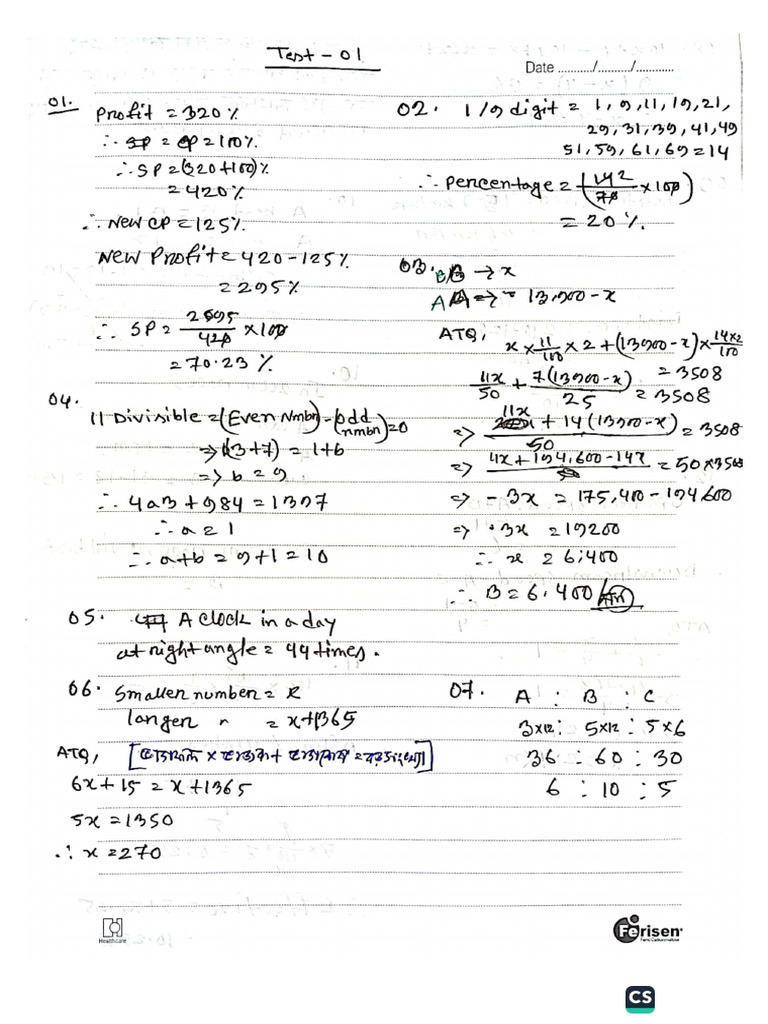 Test - 01
Date ........../........./...........
01.
Profit = 320%
∴ CP = 100%
∴ SP = (320+100)%
= 420%
∴ New CP = 125%
New Profit = 420 - 125%
= 295%
∴ SP = 295/420 × 100
= 70.23 %
02. 1/9 digit = 1, 9, 11, 19, 21,
29, 31, 39, 41, 49
51, 59, 61, 69 = 14
∴ Percentage = (14/70 × 100)
= 20%
03. B → x
A = 13,900 - x
ATQ, x × 11/100 × 2 + (13900 - x) × 14×2/100
= 3508
11x/50 + 7(13900 - x)/25 = 3508
=> 11x + 14(13900 - x)/50 = 3508
=> 11x + 194,600 - 14x = 50 × 3508
=> - 3x = 175,400 - 194600
=> 3x = 19200
∴ x = 6,400
∴ B = 6,400
04.
11 Divisible = (Even Nmbr) - (odd nmbr) = 0
=> (3+7) = 1+b
=> b = 9
∴ 4a3 + 984 = 1397
∴ a = 1
∴ a+b = 9+1 = 10
05. A clock in a day
at right angle = 44 times.
06. Smaller number = x
larger " = x+1365
ATQ,
6x + 15 = x + 1365
5x = 1350
∴ x = 270
07. A : B : C
3×12 : 5×12 : 5×6
36 : 60 : 30
6 : 10 : 5
Healthcare
Ferisen
CS